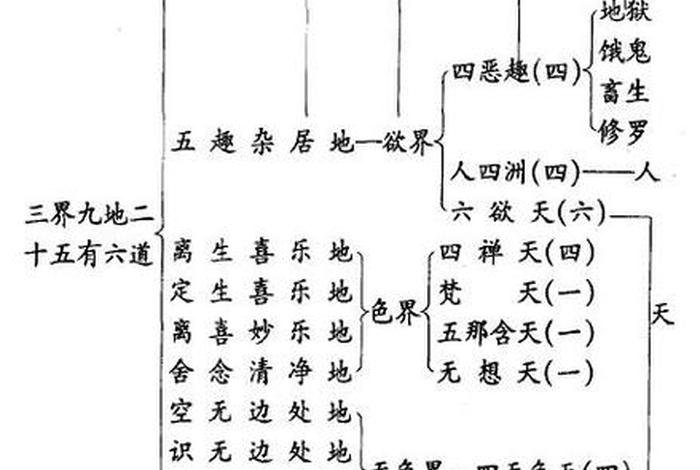 三界九地二
十五有六道
五趣杂居地
欲界
四恶趣(四)
地獄
饿鬼
畜生
修罗
人四洲(四)
人
六欲天(六)
天
离生喜乐地
定生喜乐地
离喜妙乐地
舍念清净地
色界
四禅天(四)
梵天(一)
五那含天(一)
无想天(一)
空无边处地
识无边处地
无色界
四无色天(四)